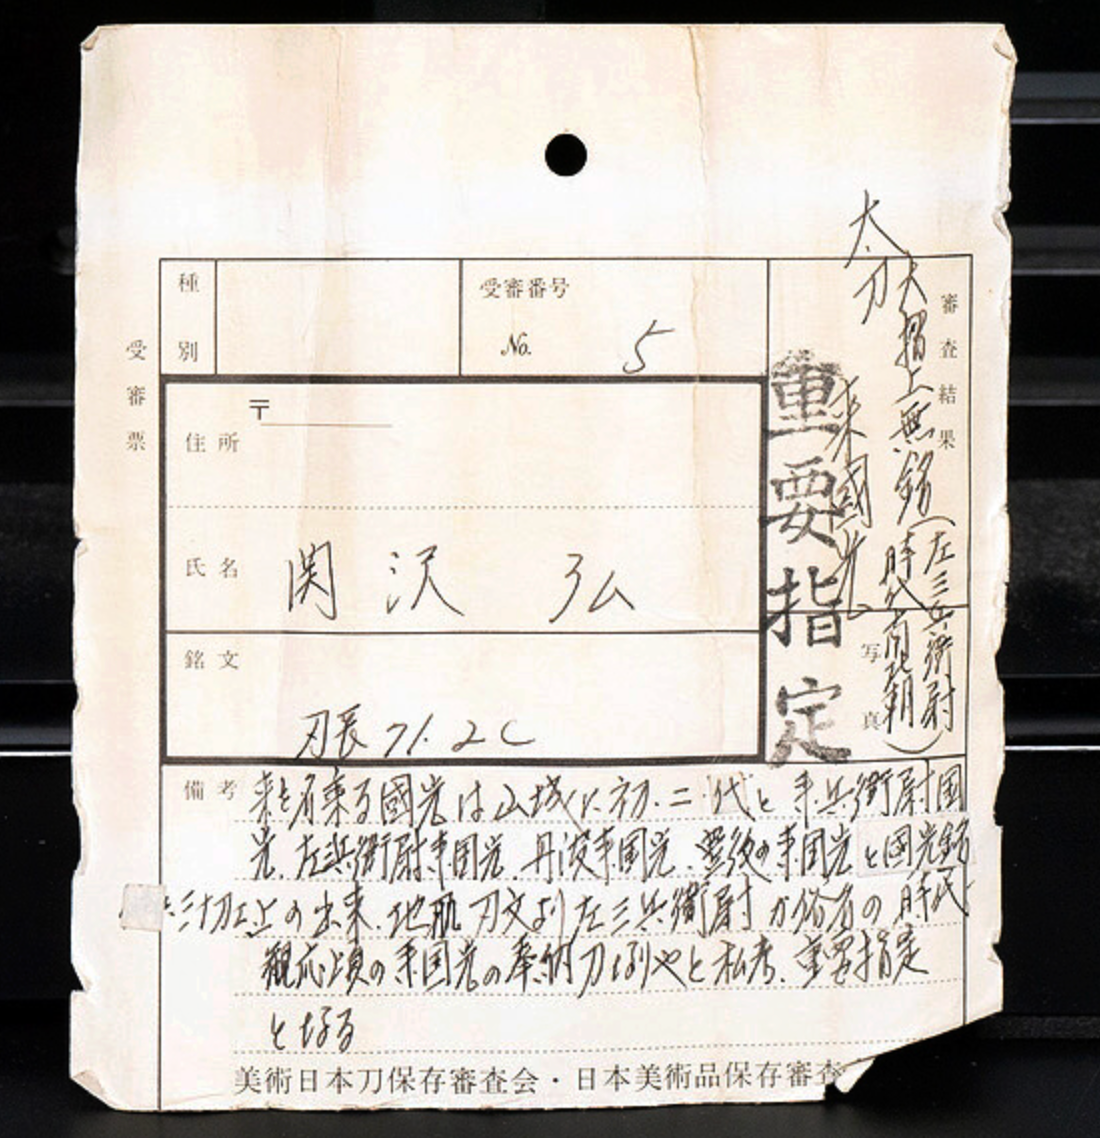 受審票
種別
受審番号
No. 5
審査結果
太刀
大摺上無銘(左三兵衛尉
時代南北朝)
来國光
重要指定
写真
〒
住所
氏名 関沢 弘
銘文
刃長 71.2C
備考 来を名乗る國光は山城に初.二代と来.兵衛尉国
光.左兵衛尉来国光.丹波来国光.豊後の来国光と国光銘
の出来.地肌刃文より左三兵衛尉が俗名の時代
観応頃の来国光の奉納刀也やと私考.重要指定
となる
美術日本刀保存審査会・日本美術品保存審査